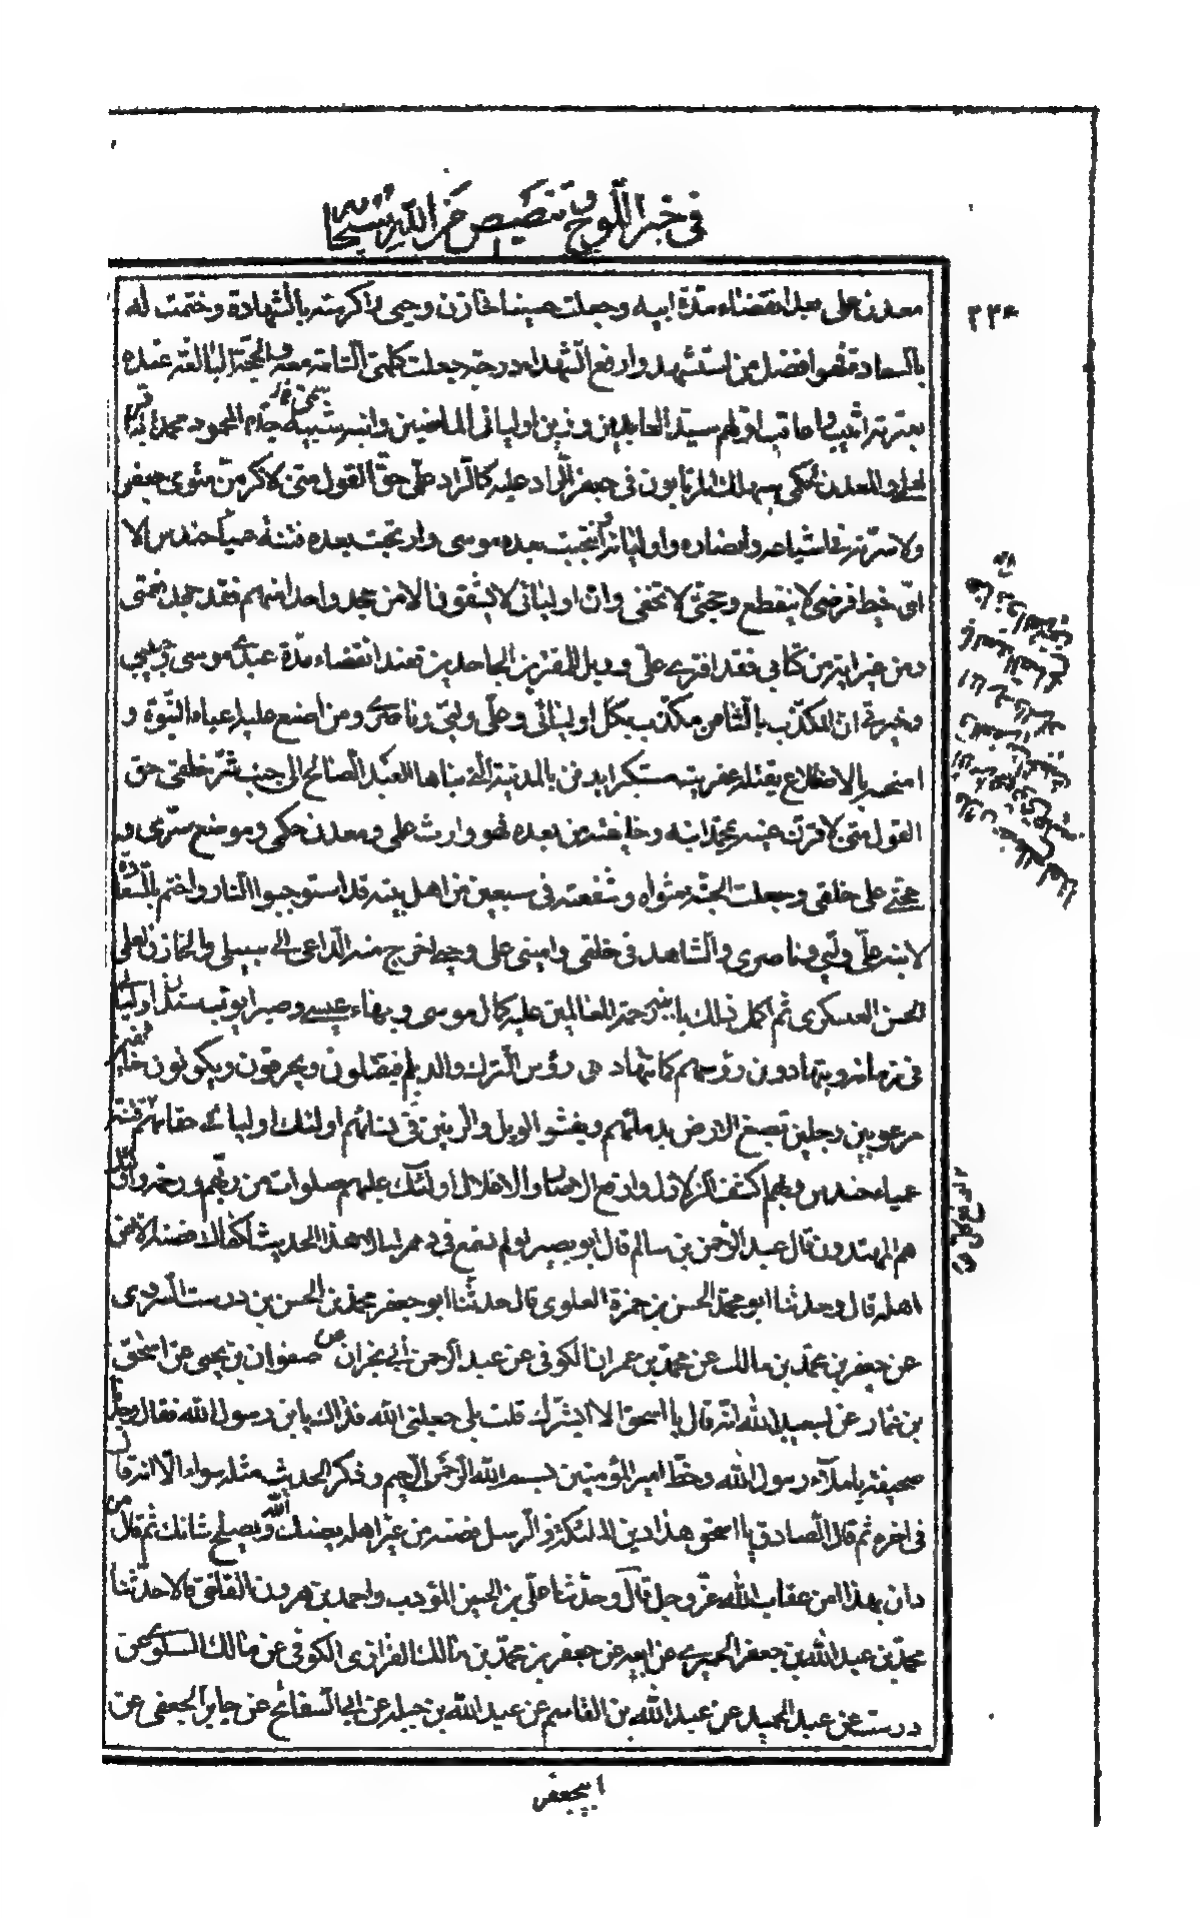 في خبر اللوح و تنصيص من الله سبحانه
۲۲۴
معدن على بعد انقضاء مدّة ابيه وجعلت حسينا خازن وحيى واكرمته بالشهادة وختمت له
بالسعادة فهو افضل من استشهد وارفع الشهداء درجة جعلت كلمتى التّامة معه والحجّة البالغة عنده
بعترته اثيب واعاقب اوّلهم سيّد العابدين وزين اوليائى الماضين وابنه شبيه جدّه المحمود محمد
لعلمى والمعدن لحكمى سيهلك المرتابون فى جعفر الرّاد عليه كالرّاد علىّ حقّ القول منّى لاكرمنّ مثوى جعفر
ولاسرّنه فى اشياعه وانصاره واوليائه انتجبت بعده موسى واتيحت بعده فتنة عمياء حندس الا
انّ خيط فرضى لا ينقطع وحجّتى لا تخفى وانّ اوليائى لا يشقون الا من جحد واحدا منهم فقد جحد نعمتى
ومن غيّر اية من كتابى فقد افترى علىّ وويل للمفترين الجاحدين عند انقضاء مدّة عبدى موسى وحبيبى
وخيرتى ان المكذّب بالثّامن مكذّب بكلّ اوليائى وعلىّ وليّى وناصرى ومن اضع عليه اعباء النبوّة و
امنحه بالاضطلاع يقتله عفريت مستكبر يدفن بالمدينة الّتى بناها العبد الصّالح الى جنب شرّ خلقى حق
القول منّى لاقرّن عينه بمحمّد ابنه وخليفته من بعده فهو وارث علمى ومعدن حكمى وموضع سرّى و
حجّتى على خلقى وجعلت الجنّة مثواه وشفعته فى سبعين من اهل بيته قد استوجبوا النار واختم بالسّعادة
لابنه علىّ وليّى وناصرى والشّاهد فى خلقى وامينى على وحيى اخرج منه الدّاعى الى سبيلى والخازن لعلمى
الحسن العسكرى ثم اكمل ذلك بابنه رحمة للعالمين عليه كمال موسى وبهاء عيسى وصبر ايّوب ستذلّ اوليائى
فى زمانه ويتهادون رؤسهم كما تتهادى رؤس الترك والديلم فيقتلون ويحرقون ويكونون خائفين
مرعوبين وجلين تصبغ الارض بدمائهم ويفشوا الويل والرنين فى نسائهم اولئك اوليائى حقا بهم ادفع كلّ فتنة
عمياء حندس وبهم اكشف الزلازل وارفع الاصار والاغلال اولئك عليهم صلوات من ربّهم ورحمة واولئك
هم المهتدون قال عبد الرّحمن بن سالم قال ابو بصير لو لم تسمع فى دهرك الا هذا الحديث لكفاك فصنه الا عن
اهله قال وحدثنا ابو محمّد الحسن بن حمزة العلوى قال حدثنا ابو جعفر محمّد بن الحسن بن درست السّروى
عن جعفر بن محمّد بن مالك عن محمّد بن عمران الكوفى عن عبد الرّحمن بن ابى نجران عن صفوان بن يحيى عن اسحق
بن عمار عن ابيعبد الله انّه قال يا اسحق الا ابشّرك قلت بلى جعلنى الله فداك يابن رسول الله فقال وجدنا
صحيفة باملاء رسول الله وخطّ امير المؤمنين بسم الله الرّحمن الرّحيم وذكر الحديث مثله سواء الّا انه قال
فى اخره ثم قال الصادق يا اسحق هذا دين الملئكة والرسل فصنه عن غير اهله يصنك الله ويصلح شانك ثم قال من
دان بهذا امن عقاب الله عزّ وجل قال وحدّثنا علىّ بن الحسين المؤدب واحمد بن هرون القاضى قالا حدّثنا
محمّد بن عبد الله بن جعفر الحميرى عن ابيه عن جعفر بن محمّد بن مالك الفزارى الكوفى عن مالك السّلولى عن
درست عن عبد الحميد عن عبد الله بن القاسم عن عبد الله بن جبلة عن ابى السّفاتج عن جابر الجعفى عن
ابيجعفر